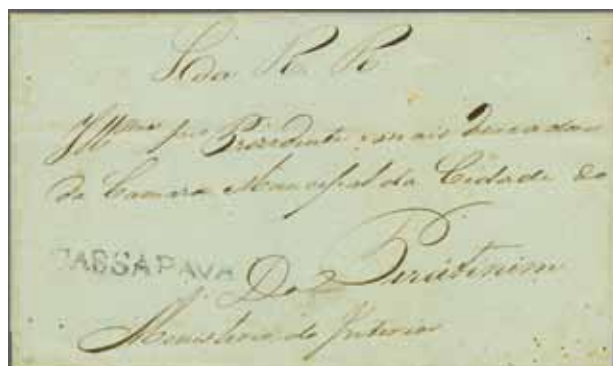 S da R. R.
Illmos Snrs Presidente e mais Vereadores
da Camara Municipal da Cidade de
CASSAPAVA Do Piratinim
Ministerio do Interior